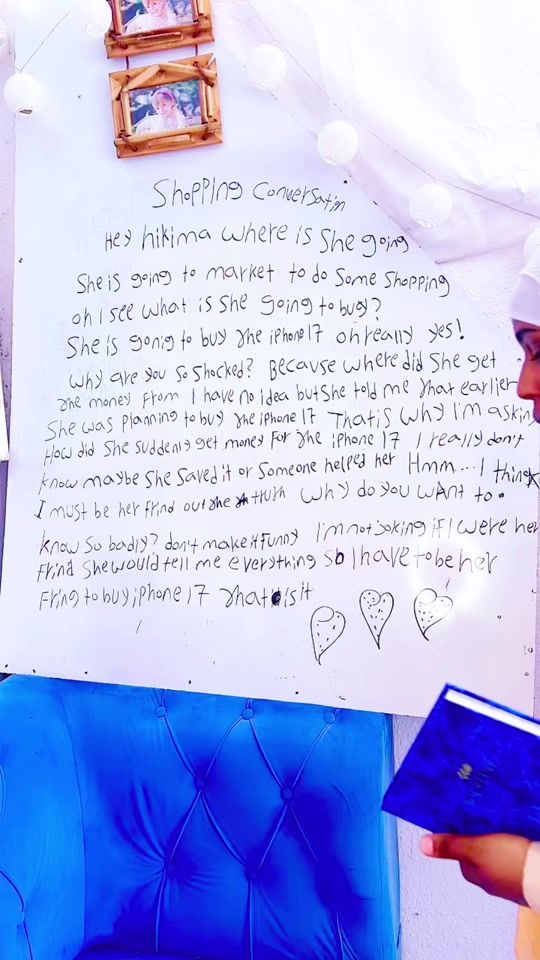 Shopping Conversatin
Hey hikima where is She going
She is going to market to do some Shopping
oh I see what is She going to buy?
She is gonig to buy the iphone 17 oh really yes!
why are you so shocked? Because where did She get
the money from I have no idea but She told me that earlier
She was planning to buy the iphone 17 That is why I'm asking
How did She suddenly get money for the iphone 17 I really don't
know maybe She Saved it or Someone helped her Hmm... I think
I must be her frind out the truth why do you want to.
know so badly? don't make it funny I'm not joking if I were her
frind She would tell me everything so I have to be her
fring to buy iphone 17 that is it